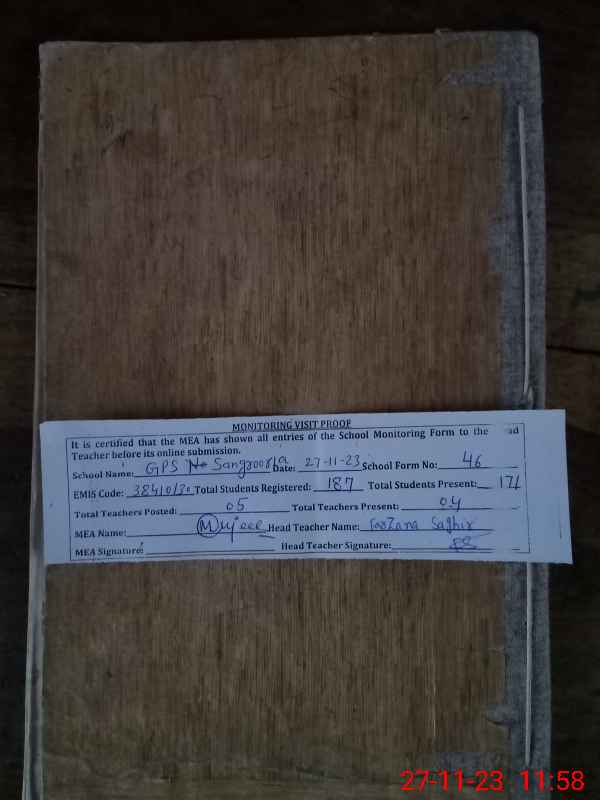 MONITORING VISIT PROOF
It is certified that the MEA has shown all entries of the School Monitoring Form to the ad
Teacher before its online submission.
School Name: GPS No Sangroora Date: 27-11-23 School Form No: 46
EMIS Code: Total Students Registered: 187 Total Students Present: 171
Total Teachers Posted: 05 Total Teachers Present: 04
MEA Name: Head Teacher Name: Farzana Saghir
MEA Signature: Head Teacher Signature:
27-11-23 11:58